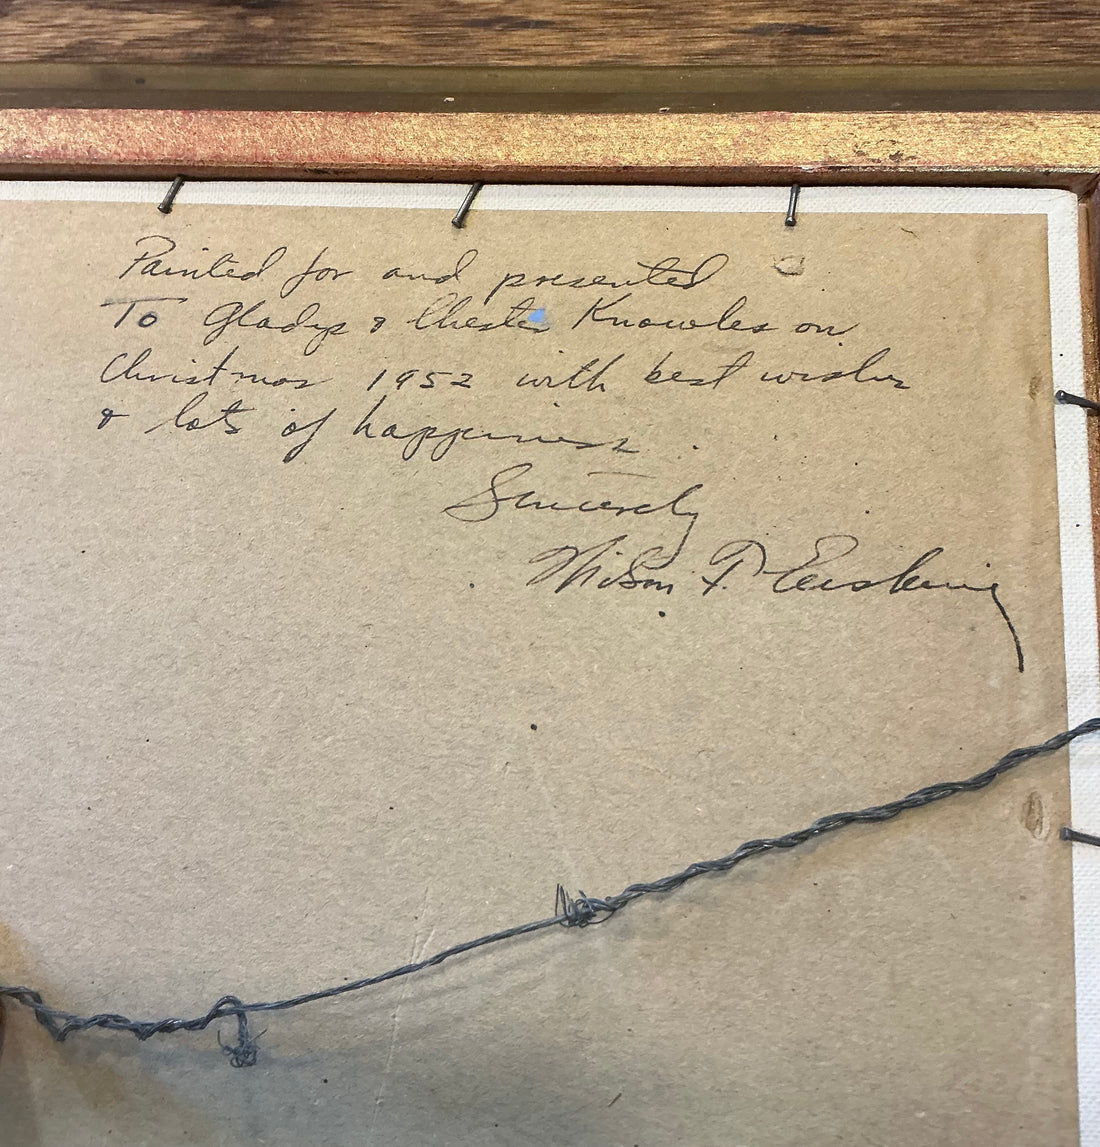 Painted for and presented
To Gladys & Chester Knowles on
Christmas 1952 with best wishes
& lots of happiness.
Sincerely
Wilson F. Erskine